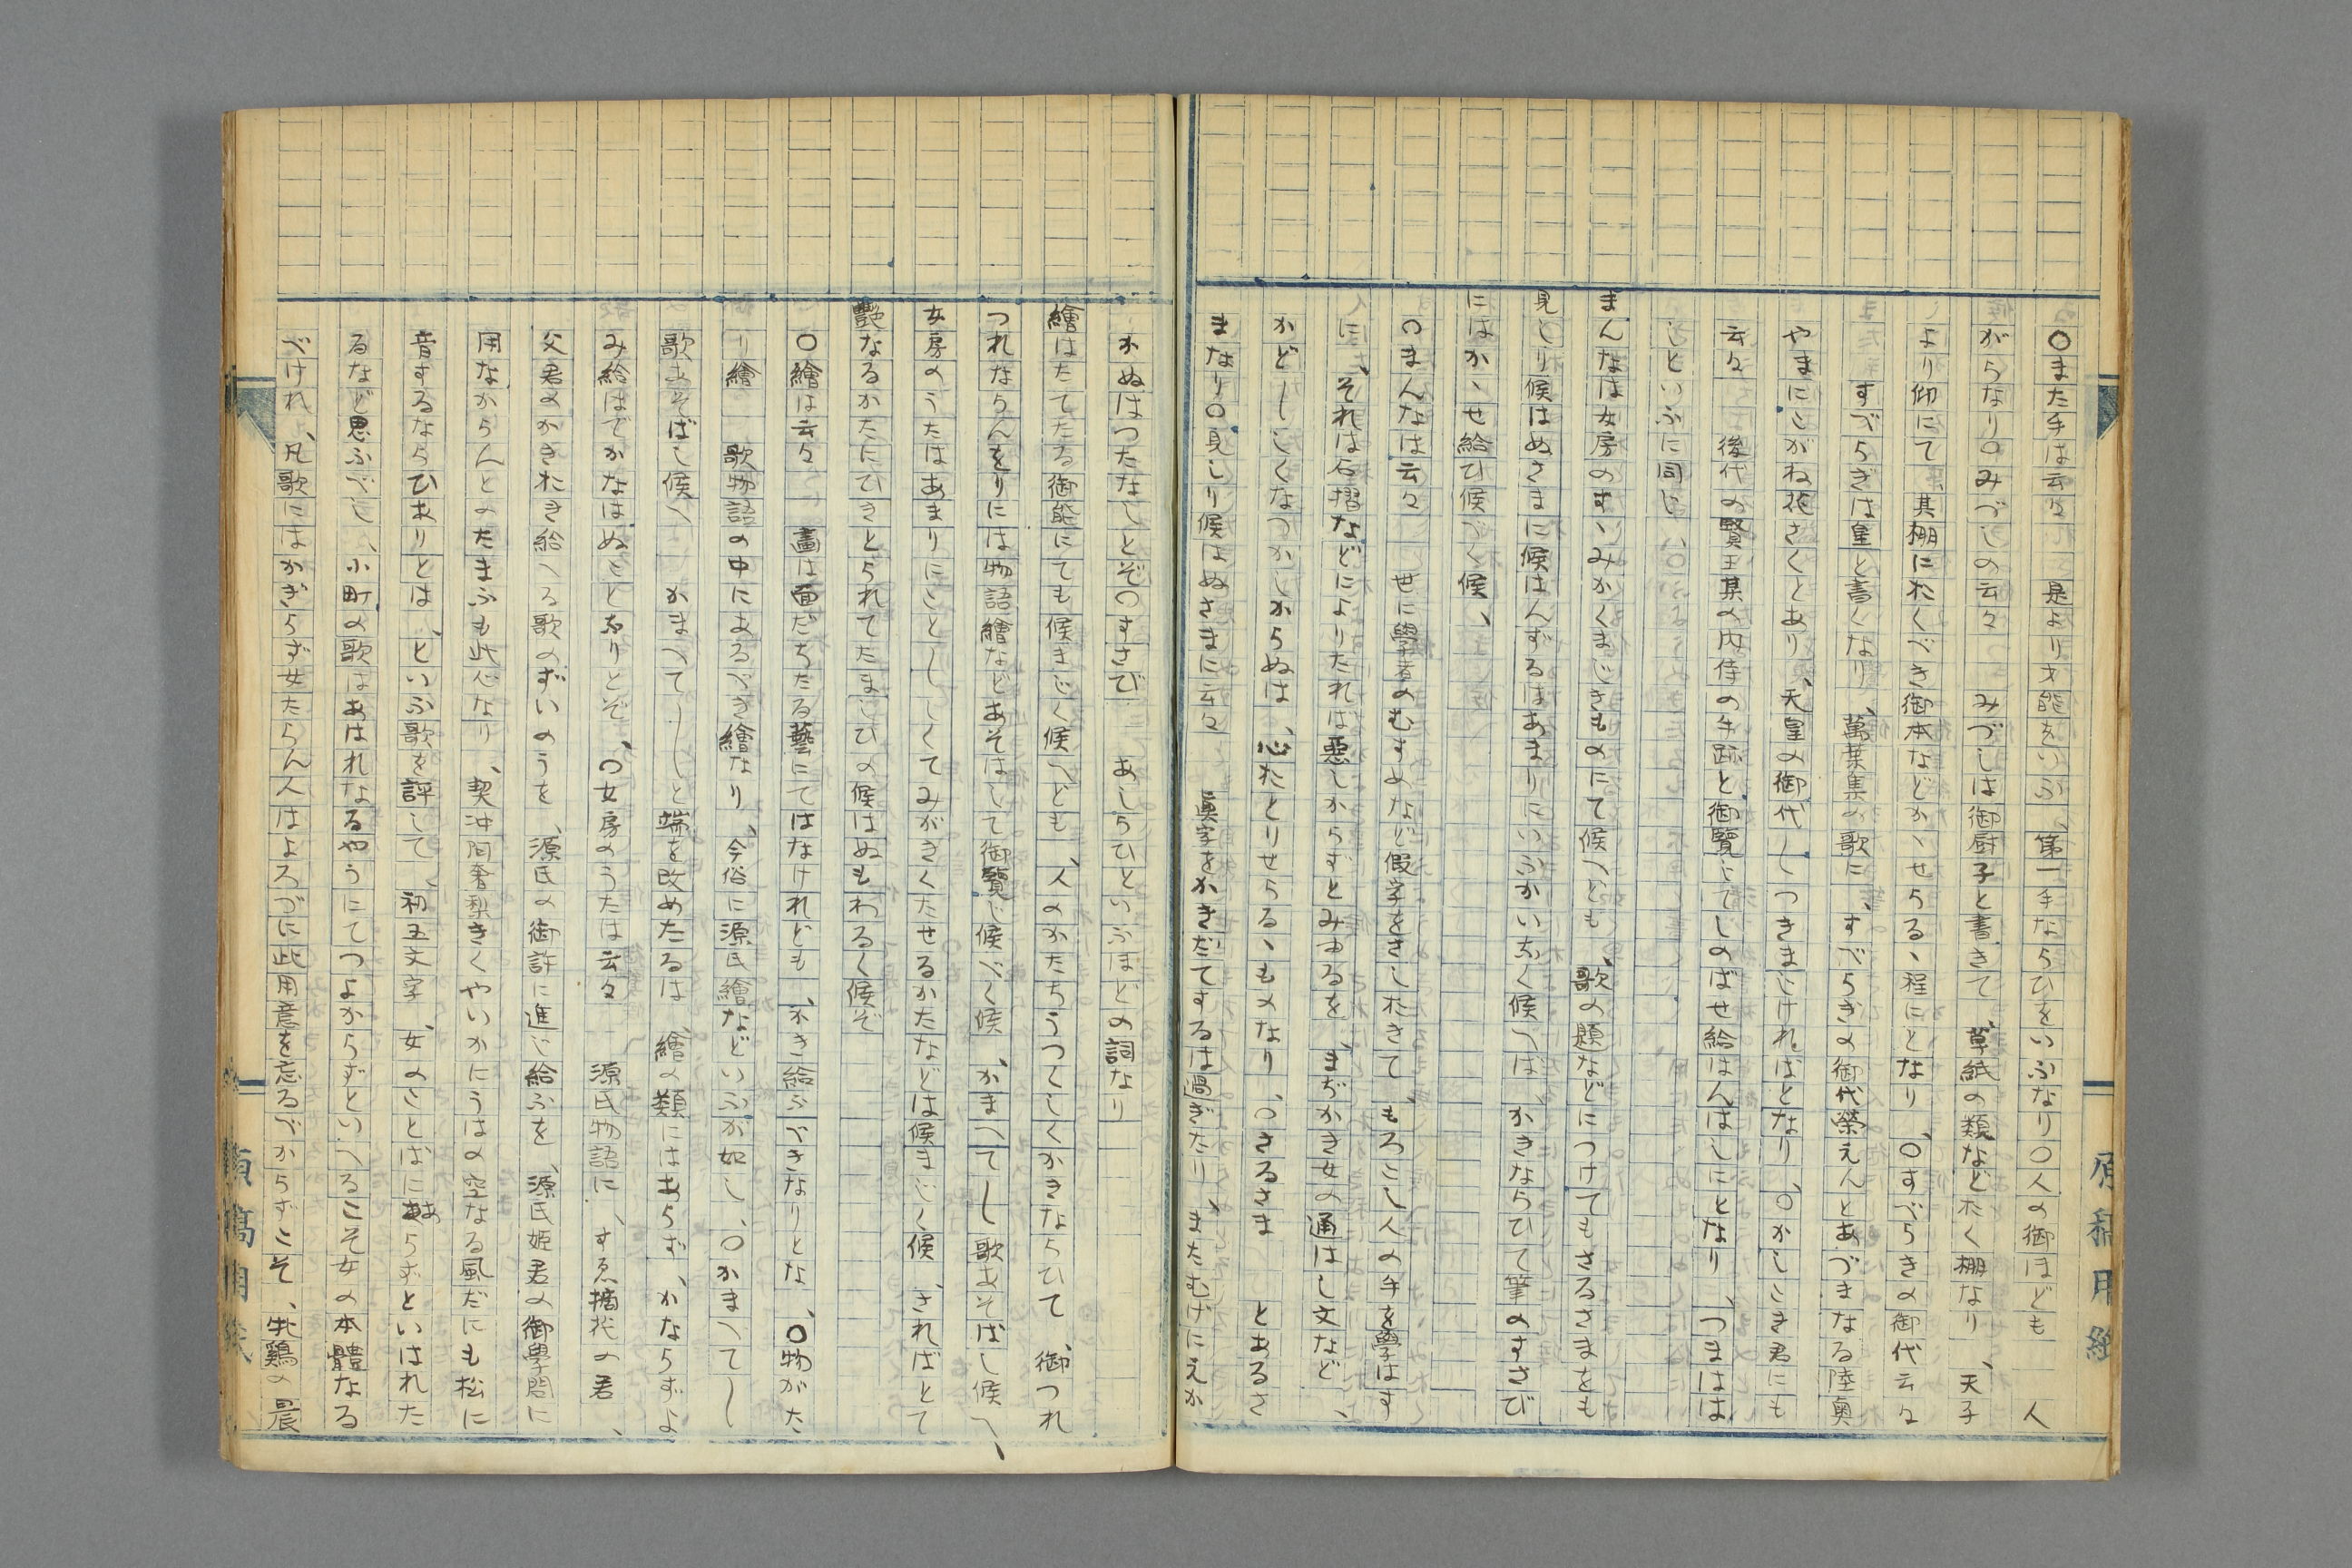 〇また手は云々　是より才能をいふ、第一手ならひをいふなり〇人の御ほども　人
がらなり〇みづしの云々　みづしは御厨子と書きて、草紙の類などおく棚なり、天子
より仰にて、其棚におくべき御本などかゝせらるゝ程にとなり、〇すべらきの御代云々
すべらぎは皇と書くなり、萬葉集の歌に、すべらぎの御代榮えんとあづまなる陸奥
やまにこがね花さくとあり、天皇の御代しつきまじければとなり、〇かしこき君にも
云々　後代の賢王某の内侍の手跡と御覽じてしのばせ給はんはしにとなり、つまはは
しといふに同じ
まんなは女房のすゝみかくまじきものにて候へども、歌の題などにつけてもさるさまをも
見しり候はぬさまに候はんずるはあまりにいふかいなく候へば、かきならひて筆のすさび
にはかゝせ給ひ候べく候、
〇まんなは云々　世に學者のむすめなど假字をさしおきて、もろこし人の手を學はす
に、それは石摺などによりたれば惡しからずとみゆるを、まぢかき女の通はし文など、
かどしくなつかしからぬは、心おとりせらるゝものなり、〇さるさま　とあるさ
まなり〇見しり候はぬさまに云々　眞字をかきだてするは過ぎたり、またむげにえか
かぬはつたなしとぞ〇すさび　あしらひといふほどの詞なり
繪はたてたる御能にても候まじく候へども、人のかたちうつくしくかきならひて、御つれ
つれならんをりには物語繪などあそはして御覽じ候べく候、かまへてし歌あそばし候へ、
女房のうたはあまりにことしくてみがきくたせるかたなどは候まじく候、さればとて
艶なるかたにひきとられてたましひの候はぬもわるく候ぞ
〇繪は云々　畵は面だちたる藝にてはなけれども、かき給ふべきなりとな、〇物がた
り繪　歌物語の中にあるべき繪なり、今俗に源氏繪などいふが如し、〇かまへてし
歌あそばし候へ　かまへてししと端を改めたるは、繪の類にはあらず、かならずよ
み給はでかなはぬことなりとぞ、〇女房のうたは云々　源氏物語に、すゑ摘花の君、
父君のかきおき給へる歌のずいのうを、源氏の御許に進じ給ふを、源氏姫君の御學問に
用なからんとのたまふも此心なり、契冲阿奢梨きくやいかにうはの空なる風だにも松に
音するならひありとは、といふ歌を評して、初五文字、女のことばにあらずといはれた
るなど思ふべし、小町の歌はあはれなるやうにてつよからずといへるこそ女の本體なる
べけれ、凡歌にはかぎらず女たらん人はよろづに此用意を忘るべからずこそ、牝鷄の晨
原稿用紙